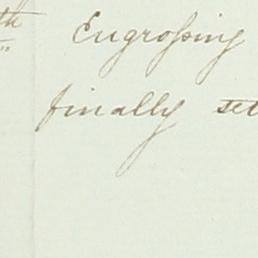 th Engrossing
" finally set